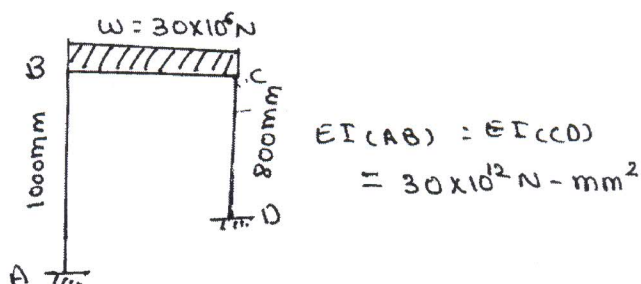 W = 30X10⁶N
B
C
1000mm
800mm
EI(AB) = EI(CD)
= 30X10¹² N-mm²
D
A